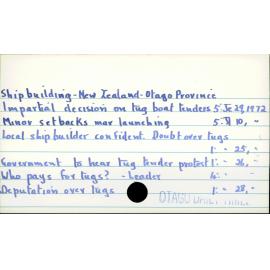 Shipbuilding - New Zealand - Otago Province
Impartial decision on tug boat tenders 5: Je 29, 1972
Minor setbacks mar launching 5: Jl 10, "
Local shipbuilder confident. Doubt over tugs
1: " 25, "
Government to hear tug tender protest 1: " 26, "
Who pays for tugs? - Leader 4: "
Deputation over tugs 1: " 28, "
OTAGO DAILY TIMES